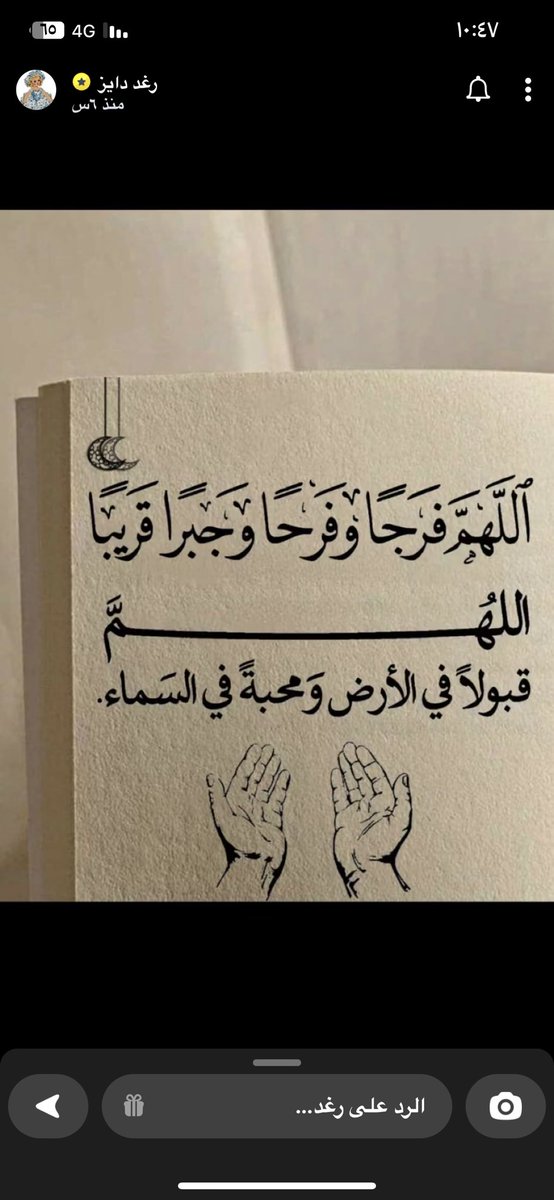 ١٠:٤٧
4G ٦٥
رغد دايز
منذ ٦س
ٱللَّهُمَّ فَرَجًا وَفَرَحًا وَجَبرًا قَرِيبًا
اللهُــــــــمَّ
قبولاً في الأرض وَمحبةً في السَماء.
الرد على رغد...